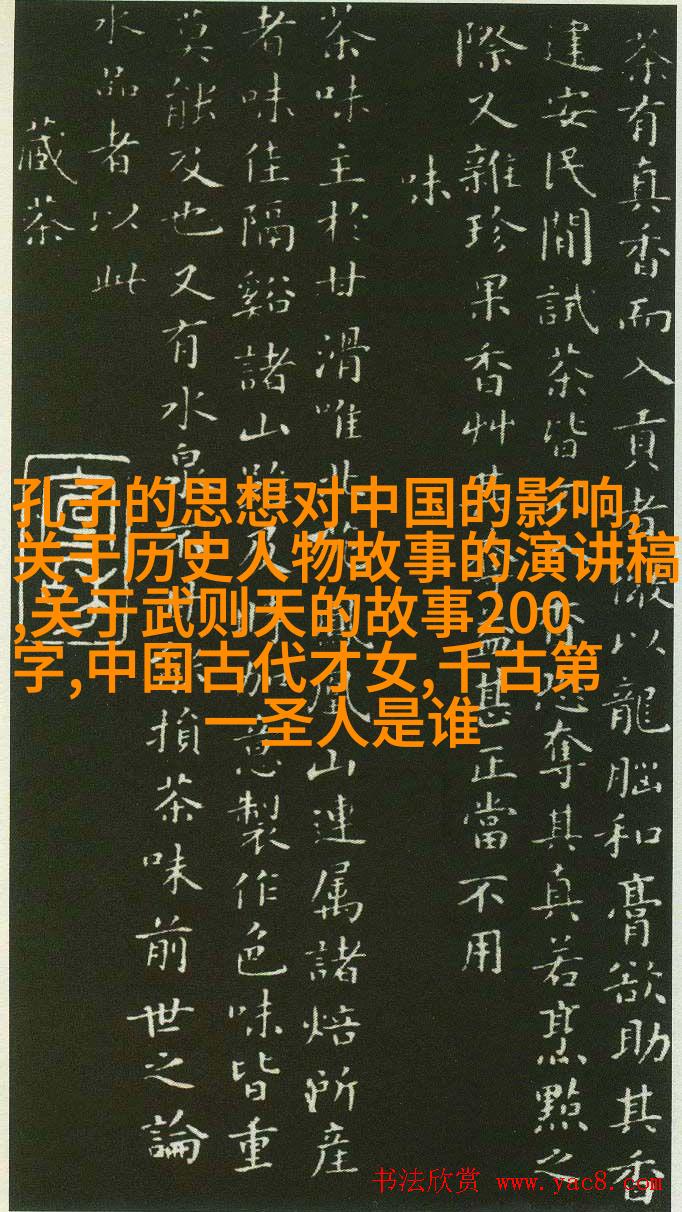 茶有真香而入貢者微以龍腦和膏欲助其香
建安民間試茶皆奪其真若烹點之
際又雜珍果香艸其甚正當不用
味
茶味主於甘滑唯北鳳凰山連属諸焙所產
者味佳隔谿諸山雖及意製作色味皆重
莫能及也又有水泉損茶味前世之論
水品者以此
藏茶
孔子的思想对中国的影响,
关于历史人物故事的演讲稿
,关于武则天的故事200
字,中国古代才女,千古第
一圣人是谁
书法欣赏 www.yac8.com